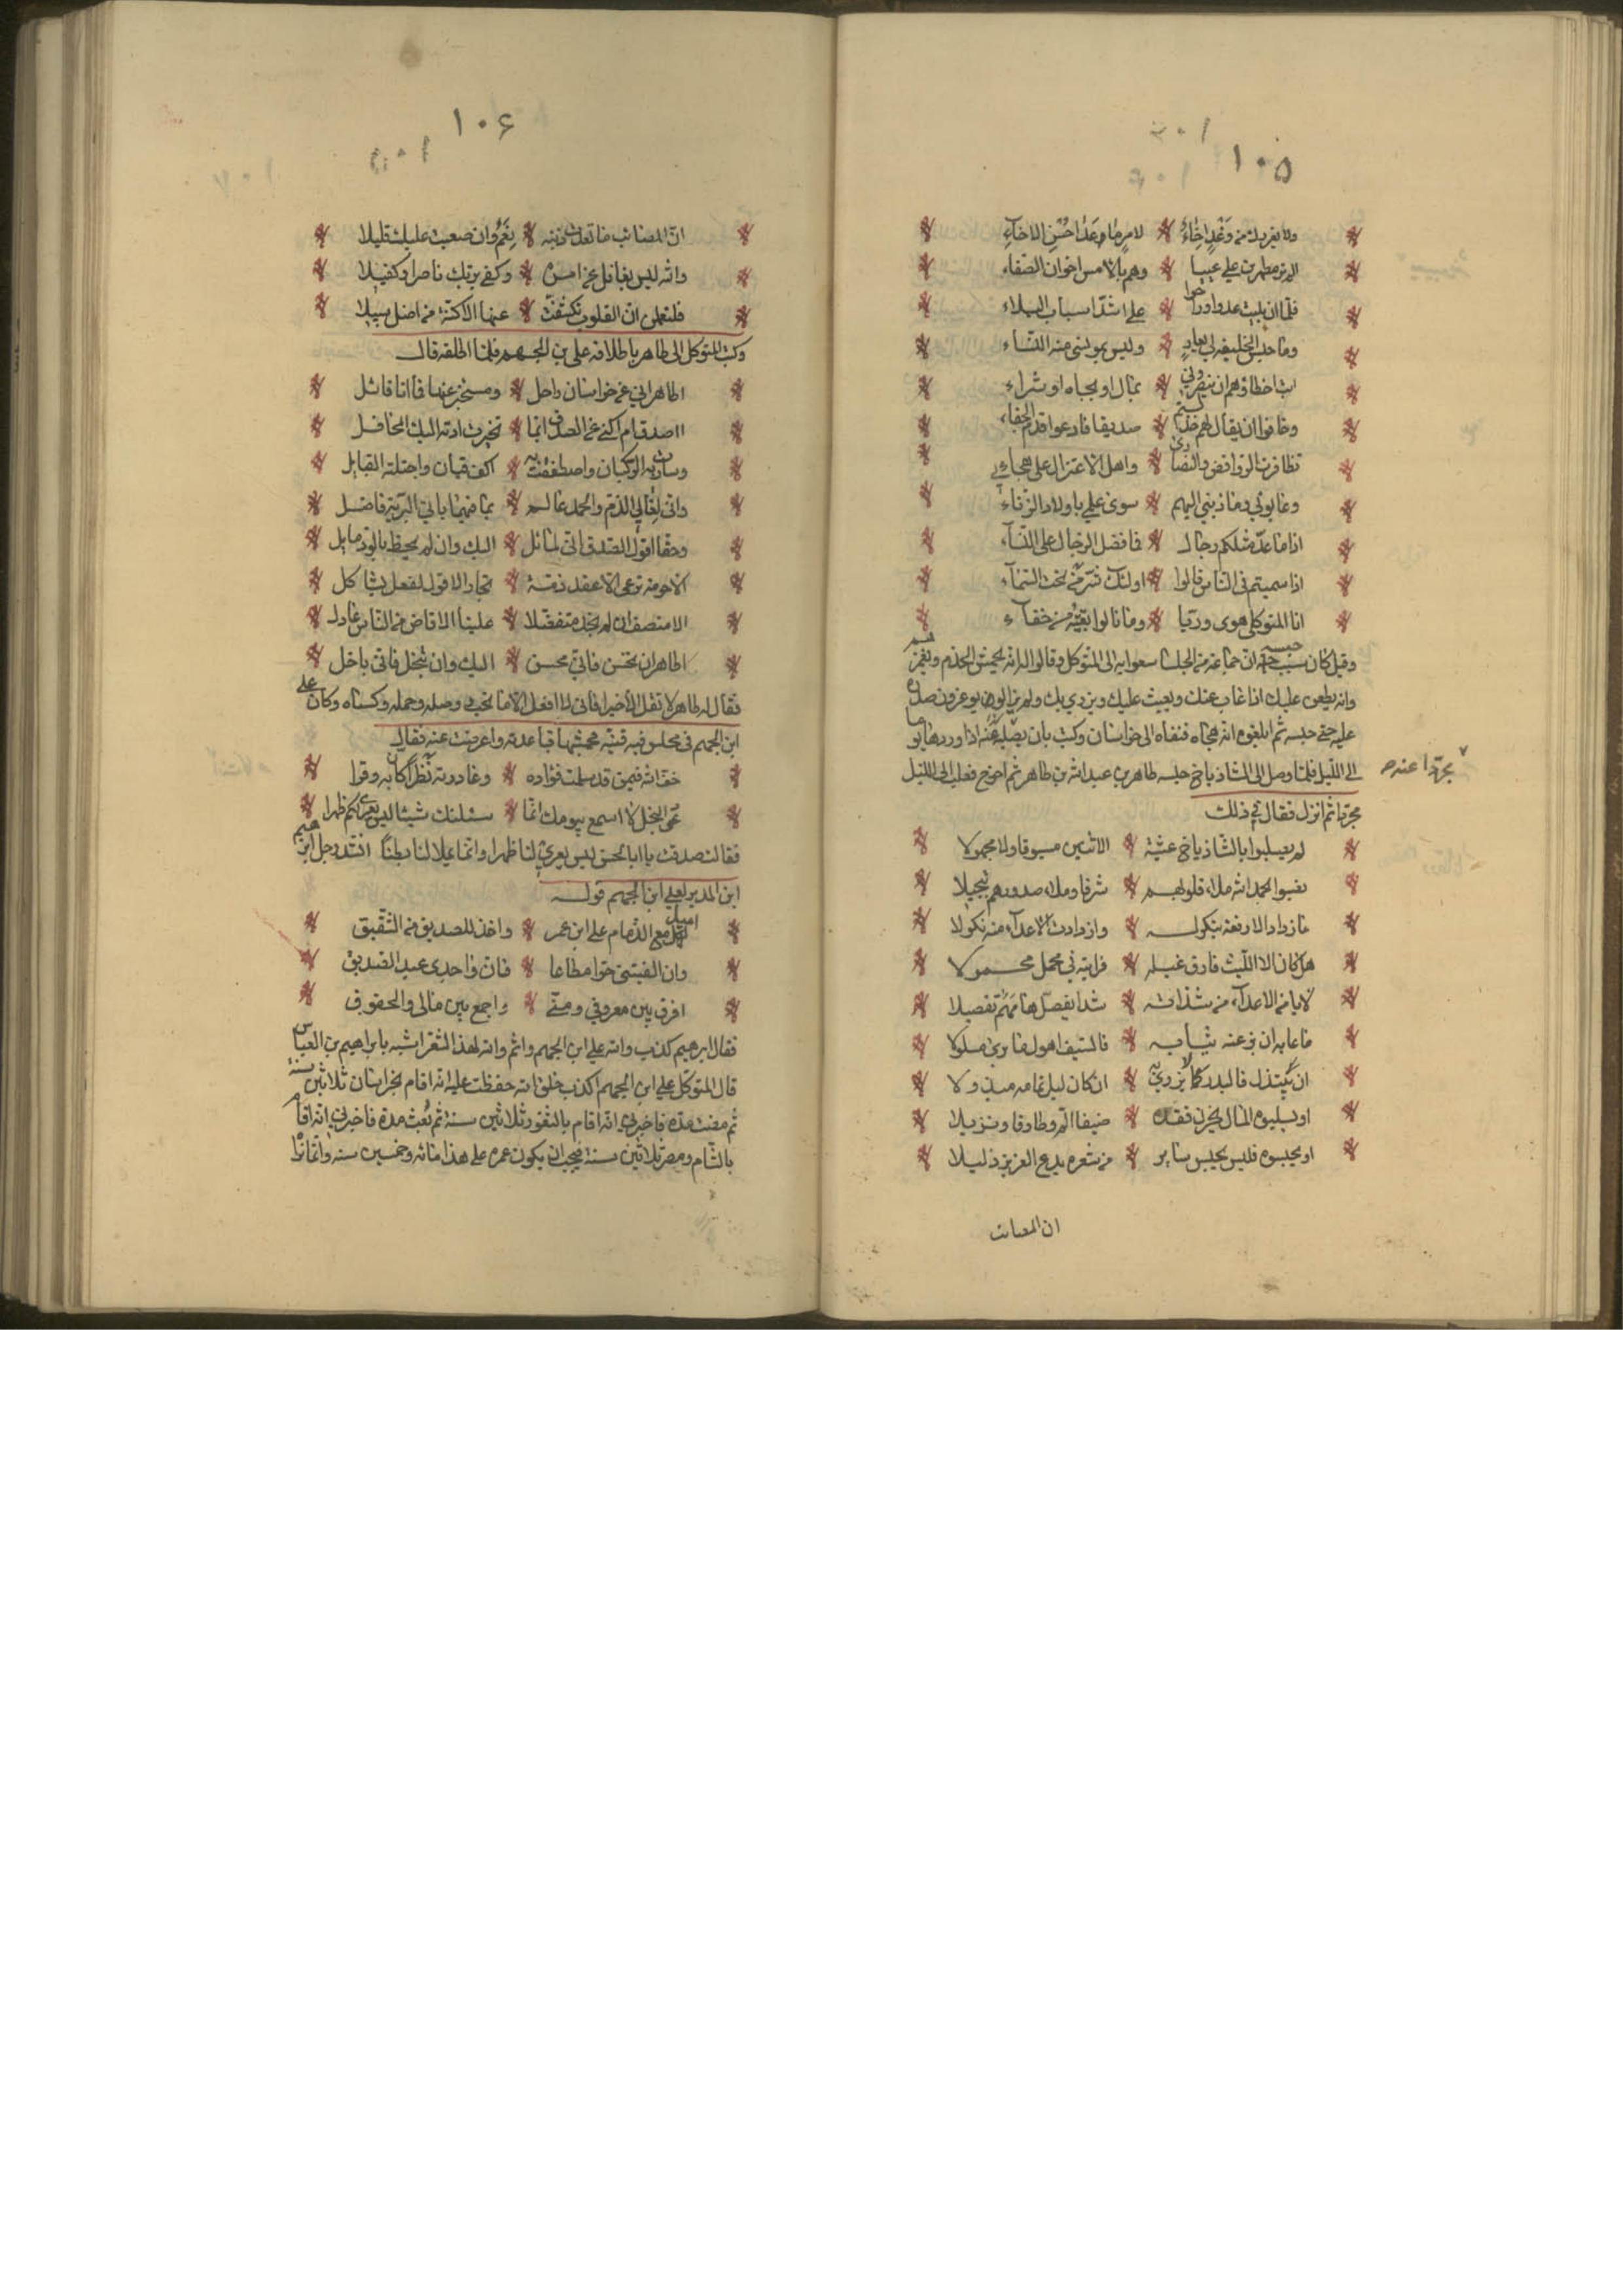 ١٠۵
ولا يغررك من وَغْدٍ اِخَاءٌ لامرٍ ما وعَدَا حُسْنِ الاخآءِ
الم تر مظهرين علي عيبا وهم بالامس اخوان الصفاء
فلما ان بليت غدوا وراحوا على اشد اسباب البلاء
وما حبس الخليفة لي بعارٍ وليس بمويسي منه التناء
ابت اخطارهم ان ينصروني بمال او بجاه او ثراء
وخافوا ان يقال لهم خذلتم صديقا فادعوا قدم الجفاء
تظافرت الروافض والنصارى واهل الاعتزال على هجاءي
وعابوني وما ذنبي اليهم سوى علمي باولاد الزناء
اذا ما عدّ مثلكم رجال فما فضل الرجال على النسآء
اذا سميتم في الناس قالوا اولئك شرّ من تحت السّمآء
انا المتوكلي هوى ورأيا وما بالواثقية من خفآء
وقيل كان سبب حبسه ان جماعة من الجلسا سعوا به الى المتوكل وقالوا له انه يجمش الخدم ويغمزهم
وانه يطعن عليك اذا غاب عنك ويعيب عليك ويزري بك ولم يزالوا به يوغرون صدره
عليه حتى حبسه ثم ابلغوه انه هجاه فنفاه الى خراسان وكتب بان يصلب اذا وردها يوما
الى الليل فلما وصل الى الشاذياخ حبسه طاهر بن عبد الله بن طاهر ثم اخرج فصلب الى الليل
مجردا عنده
مجردا ثم انزل فقال في ذلك
لم يصلبوا بالشاذياخ عشيّة الاثنين مسبوقا ولا مجهولا
نصبوا بحمد الله ملء قلوبهم شرفا وملء صدورهم تبجيلا
ما زداد الا رفعة بنكوله وازدادت الاعدآء منه نكولا
هل كان الا الليث فارق غيله فرايته في محمل محمولا
لا يامن الاعدآء من شداته شدا يفصّل هامهم تفصيلا
ما عابه ان بزّ عنه ثيابه فالسيف اهول ما يرى مسلولا
ان يبتذل فالبدر لا يزري به ان كان ليل تمامه مبذولا
او يسلبوه المال يحزن فقده ضيفا الم وطارقا ونزيلا
او يحبسوه فليس يحبس سائر من شعره يدع العزيز ذليلا
ان المصائب
١٠۶
انّ المصائب ما تعدت دينه نِعَمٌ وان صعبت عليك قليلا
والله ليس بغافل عن امره وكفى بربك ناصرا وكفيلا
فلتعلمن اذا القلوب تكشفت عنها الاكنّة من اضل سبيلا
وكتب المتوكل الى طاهر باطلاقه علي بن الجهم فلما اطلقه قال
اطاهر اني عن خراسان راحل ومستخبر عنها فما انا قائل
ااصدق ام اكني عن الصدق ايما تخيرت ادته اليك المحافل
وسارت به الركبان واصطفقت به اكف قيان واجتلته القبايل
واني بعالي الذم والحمد عالم بما فيهما باني البرية فاضل
وحقا اقول الصدق اني لمائل اليك وان لم يحظ بالود مايل
الا حرمة ترعى الا عقد ذمّة لجار الا قول لفعل يشاكل
الا منصف ان لم نجد متفضلا علينا الا قاض من الناس عادل
اطاهر ان تحسن فاني محسن اليك وان تبخل فاني باخل
فقال له طاهر لا تقل الا خيرا فاني لا افعل الا ما تحب ووصله وحمله وكساه وكان علي
ابن الجهم في مجلس فيه قينة فجمشها فباعدته واعرضت عنه فقال
خفي الله فيمن قد سلبت فؤاده وغادرته نضوا كأن به وقرا
دعي البخل لا اسمع بيومك انما سئلتك شيئا ليس يعري لكم ظهرا
فقالت صدقت يا ابا الحسن ليس يعري لنا ظهرا وانما يملا لنا بطنا انشد رجل ابرهيم
ابن المدبر لعلي ابن الجهم قوله
اميل مع الذمام على ابن عمر واخذ للصديق من الشقيق
وان الفيتني حرا مطاعا فانك واجدي عبد الصديق
افرق بين معروفي ومنّي واجمع بين مالي والحقوق
فقال ابرهيم كذب والله علي ابن الجهم واثم والله لهذا الشعر اشبه بابراهيم بن العباس
قال المتوكل علي ابن الجهم اكذب خلق الله حفظت عليه انه اقام بخراسان ثلاثين سنة
ثم مضت مدة فاخبرني انه اقام بالثغور ثلاثين سنة ثم مضت مدة فاخبرني انه اقام
بالشام ومصر ثلاثين سنة فيجب ان يكون عمره على هذا مائة وخمسين سنه وانما